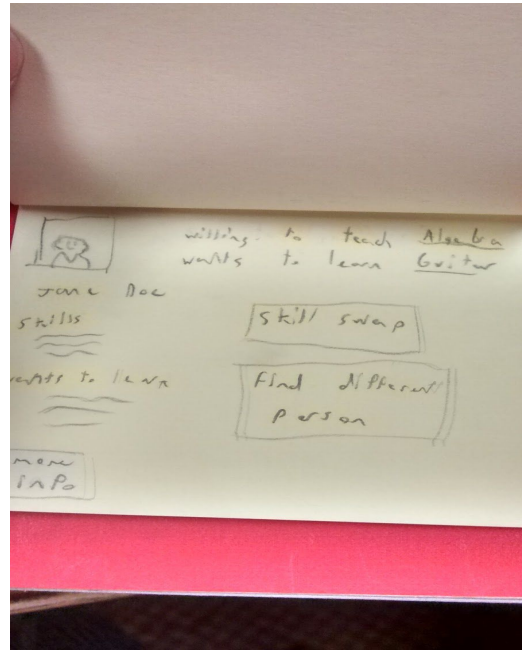 willing to teach Algebra
wants to learn Guitar
Jane Doe
skills
wants to learn
more
info
skill swap
Find different
person